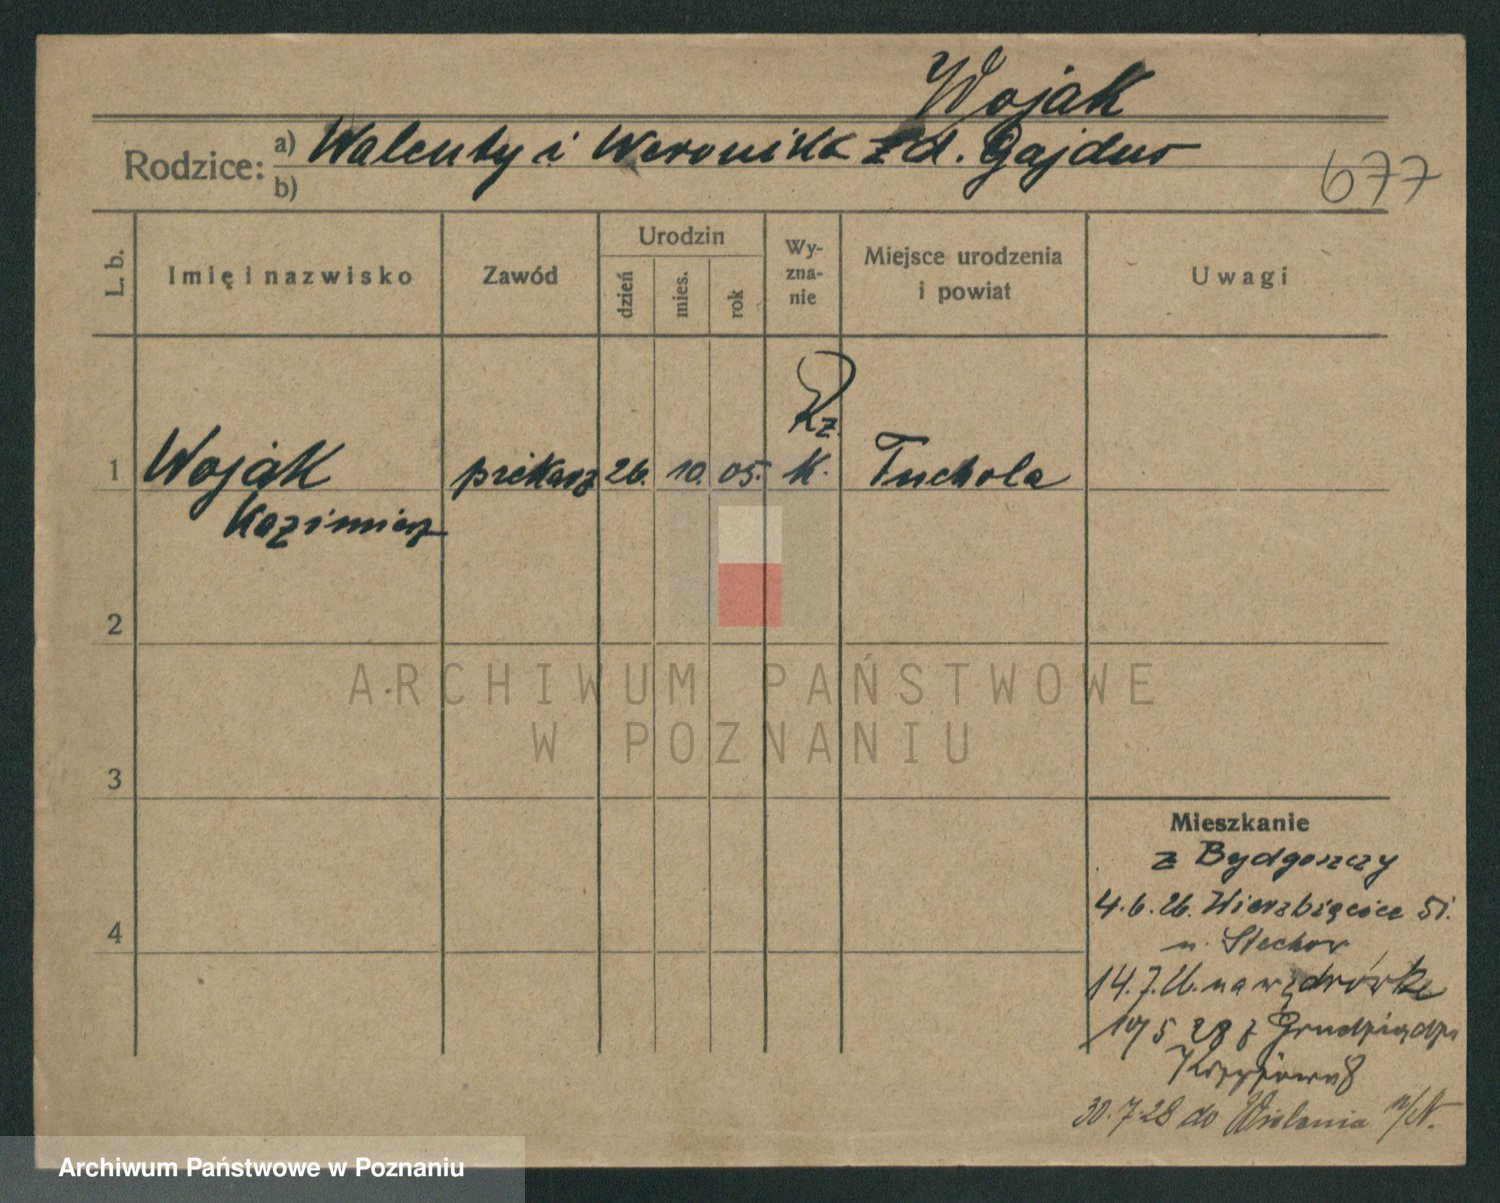 Wojak
Rodzice: a) Walenty i Weronika zd. Gajdus
b)
677
L. b.
Imię i nazwisko
Zawód
Urodzin
dzień
mies.
rok
Wy-
zna-
nie
Miejsce urodzenia
i powiat
Uwagi
1 Wojak piekarz 26. 10. 05. Rz. K. Tuchola
Kazimierz
2
3
4
Mieszkanie
z Bydgoszczy
4.6.26. Wierzbięcice 51.
u. Stechor
14.7.26. na wędrówkę
10/5 28 z Grudziądza
Krzyżowa 8
30.7.28 do Wielenia n/N.
ARCHIWUM PAŃSTWOWE
W POZNANIU
Archiwum Państwowe w Poznaniu